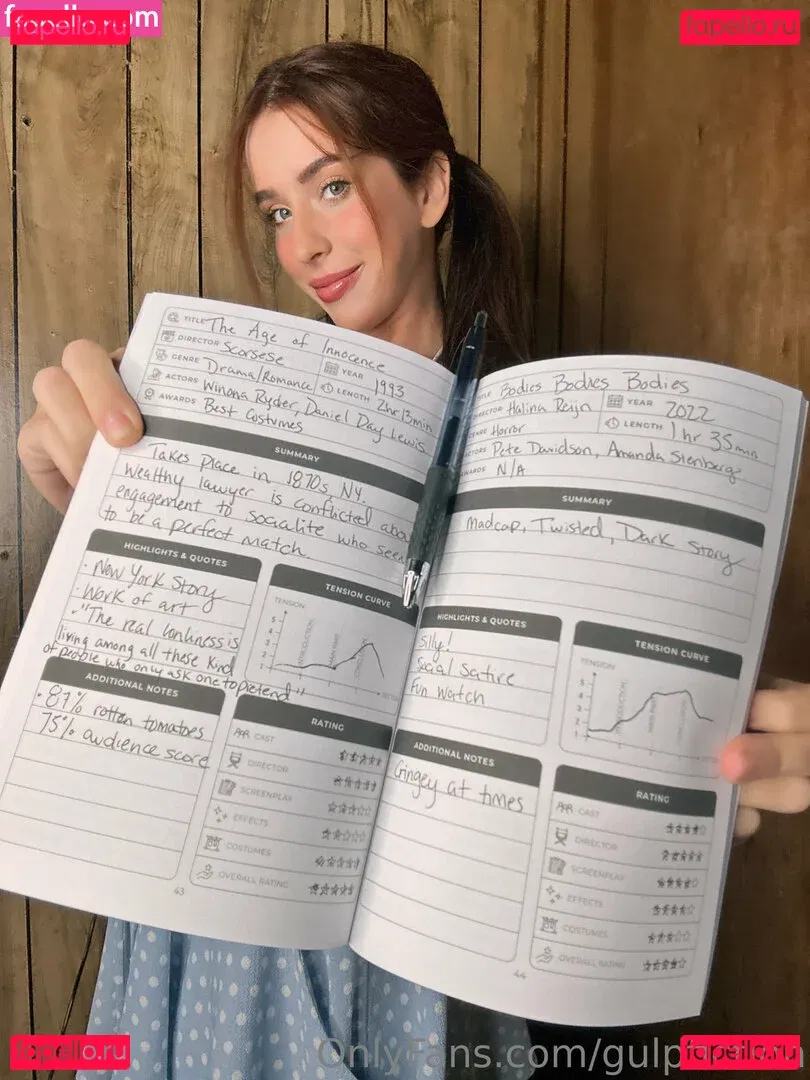 fapello.com
fapello.ru
fapello.ru
TITLE The Age of Innocence
DIRECTOR Scorsese
YEAR 1993
GENRE Drama/Romance
LENGTH 2hr 13min
ACTORS Winona Ryder, Daniel Day Lewis
AWARDS Best Costumes
SUMMARY
Takes place in 1870s, NY.
Wealthy lawyer is conflicted
engagement to socialite who
to be a perfect match
HIGHLIGHTS & QUOTES
· New York Story
· Work of art
· "The real lonliness is
living among all these kind
of people who only ask one to pretend"
TENSION CURVE
TENSION
5
4
3
2
1
ADDITIONAL NOTES
· 87% rotten tomatoes
75% audience score
RATING
CAST
DIRECTOR
SCREENPLAY
EFFECTS
COSTUMES
OVERALL RATING
43
Bodies Bodies Bodies
Halina Reijn
YEAR 2022
Horror
LENGTH 1hr 35min
Pete Davidson, Amanda Stenberg
N/A
SUMMARY
Madcap, Twisted, Dark Story
HIGHLIGHTS & QUOTES
Silly!
Social Satire
Fun Watch
TENSION CURVE
TENSION
5
4
3
2
1
ADDITIONAL NOTES
Cringey at times
RATING
CAST
DIRECTOR
SCREENPLAY
EFFECTS
COSTUMES
OVERALL RATING
44
fapello.ru
OnlyFans.com/gulp
fapello.ru